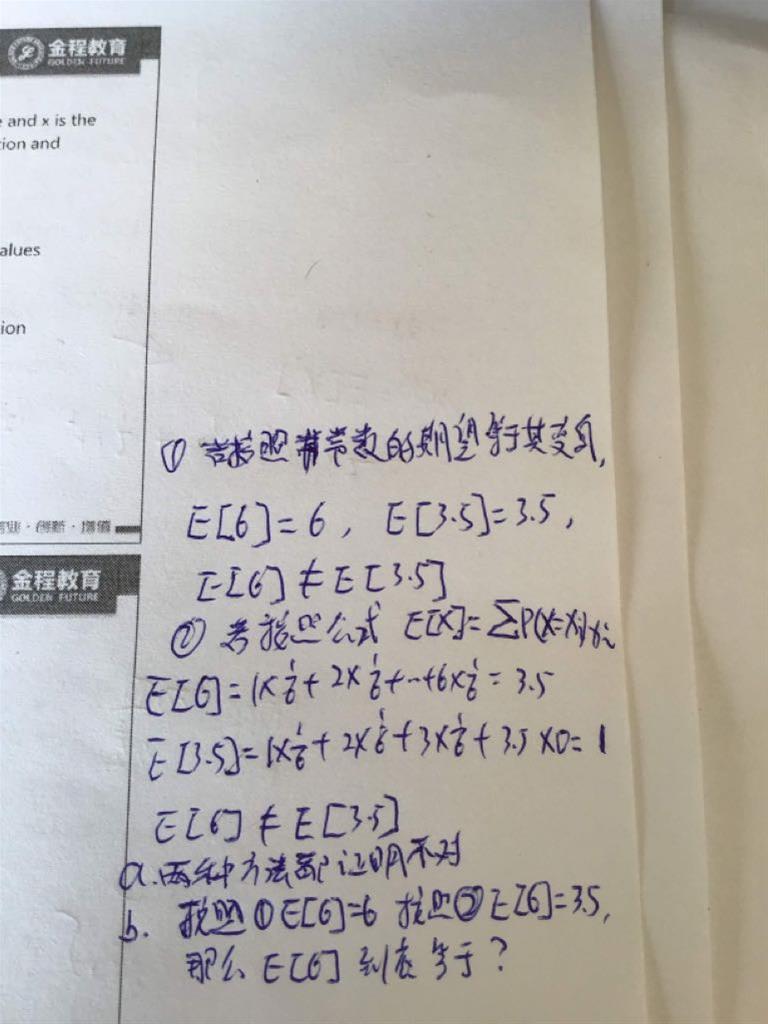 金程教育
GOLDEN FUTURE
e and x is the
tion and
alues
ion
① 若按照常数的期望等于其变项,
E[6]=6, E[3.5]=3.5,
E[6]≠E[3.5]
· 创新 · 增值
金程教育
GOLDEN FUTURE
② 若按照公式 E[X]=ΣP(X=xi)xi
E[6]=1×1/6+2×1/6+…+6×1/6=3.5
E[3.5]=1×1/6+2×1/6+3×1/6+3.5×0=1
E[6]≠E[3.5]
a.两种方法都证明A不对
b. 按照①E[6]=6 按照②E[6]=3.5,
那么 E[6] 到底等于?